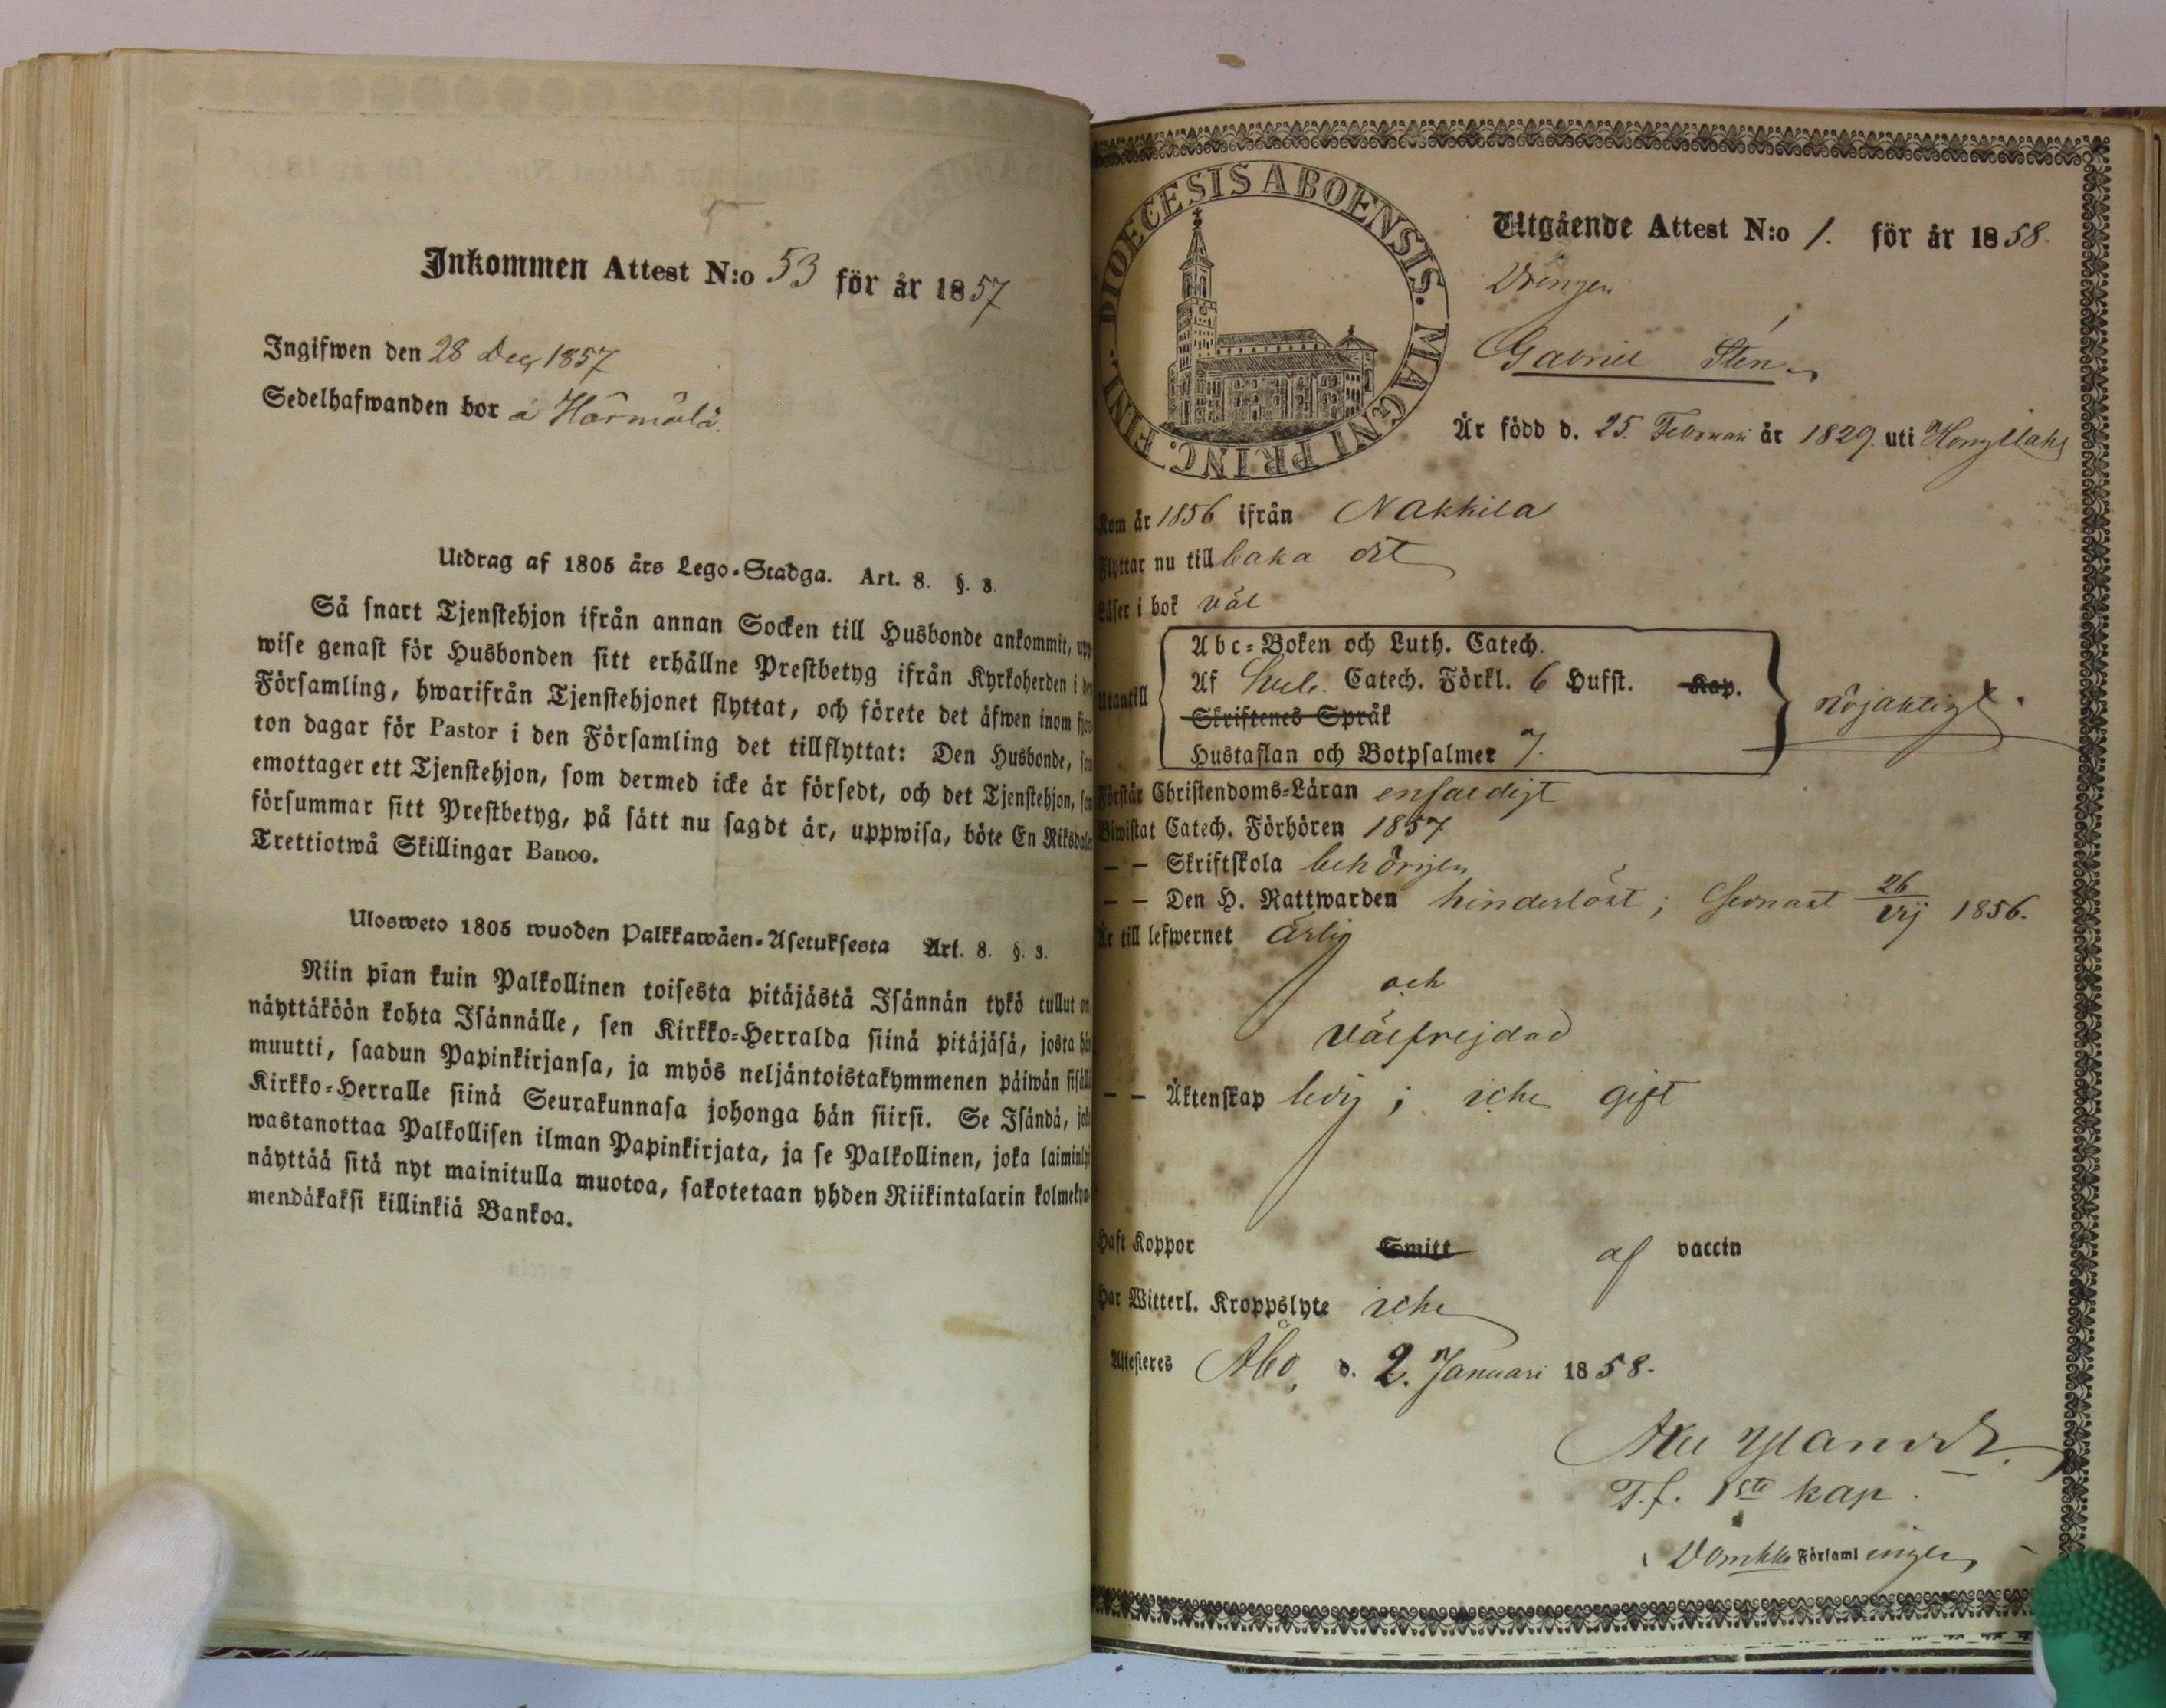 Inkommen Attest N:o 53 för år 1857
Ingifwen den 28 Dec 1857
Sedelhafwanden bor å Härmälä.
Utdrag af 1805 års Lego-Stadga. Art. 8. §. 3.
Så snart Tjenstehjon ifrån annan Socken till Husbonde ankommit, upp-
wise genast för Husbonden sitt erhållne Prestbetyg ifrån Kyrkoherden i den
Församling, hwarifrån Tjenstehjonet flyttat, och förete det äfwen inom fjor-
ton dagar för Pastor i den Församling det tillflyttat: Den Husbonde, som
emottager ett Tjenstehjon, som dermed icke är försedt, och det Tjenstehjon, som
försummar sitt Prestbetyg, på sätt nu sagdt är, uppwisa, böte En Riksdaler
Trettiotwå Skillingar Banco.
Ulosweto 1805 wuoden Palkkawäen-Asetuksesta Art. 8. §. 3.
Niin pian kuin Palkollinen toisesta pitäjästä Isännän tykö tullut on,
näyttäköön kohta Isännälle, sen Kirkko-Herralda siinä pitäjäsä, josta hän
muutti, saadun Papinkirjansa, ja myös neljäntoistakymmenen päiwän sisällä
Kirkko-Herralle siinä Seurakunnasa johonga hän siirsi. Se Isändä, joka
wastanottaa Palkollisen ilman Papinkirjata, ja se Palkollinen, joka laiminlyö
näyttää sitä nyt mainitulla muotoa, sakotetaan yhden Riikintalarin kolmekym-
mendäkaksi killinkiä Bankoa.
DIOECESIS ABOENSIS. MAGNI PRINC. FINL.
Utgående Attest N:o 1. för år 1858.
Drängen
Gabriel Sten
Är född d. 25. Februari år 1829. uti Hongilaks
Kom år 1856 ifrån Nakkila
Flyttar nu till baka dit
Läser i bok väl
Utantill
Abc-Boken och Luth. Catech.
Af Sveb. Catech. Förkl. 6 Hufst. Kap.
Skriftenes Språk
Hustaflan och Botpsalmer 7.
nöjaktigt.
Förstår Christendoms-Läran enfaldigt
Biwistat Catech. Förhören 1857
— — Skriftskola behörigen
— — Den H. Nattwarden hinderlöst; senast 26/vij 1856.
Är till lefwernet ärlig
och
välfrejdad
— — Äktenskap ledig; icke gift
Haft Koppor Smitt af vaccin
Har Witterl. Kroppslyte icke
Attesteres Åbo, d. 2. Januari 1858.
T.f. 1ste kap.
i Domkko Församlingen